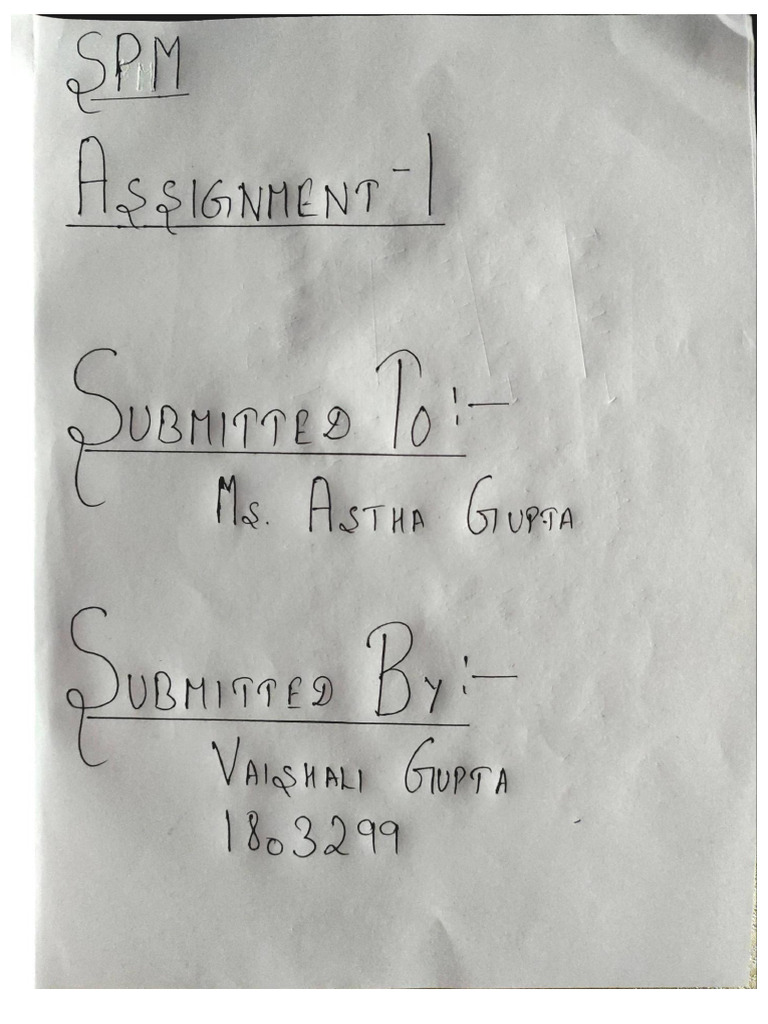 SPM
ASSIGNMENT-1
SUBMITTED TO:-
MS. ASTHA GUPTA
SUBMITTED BY:-
VAISHALI GUPTA
1803299